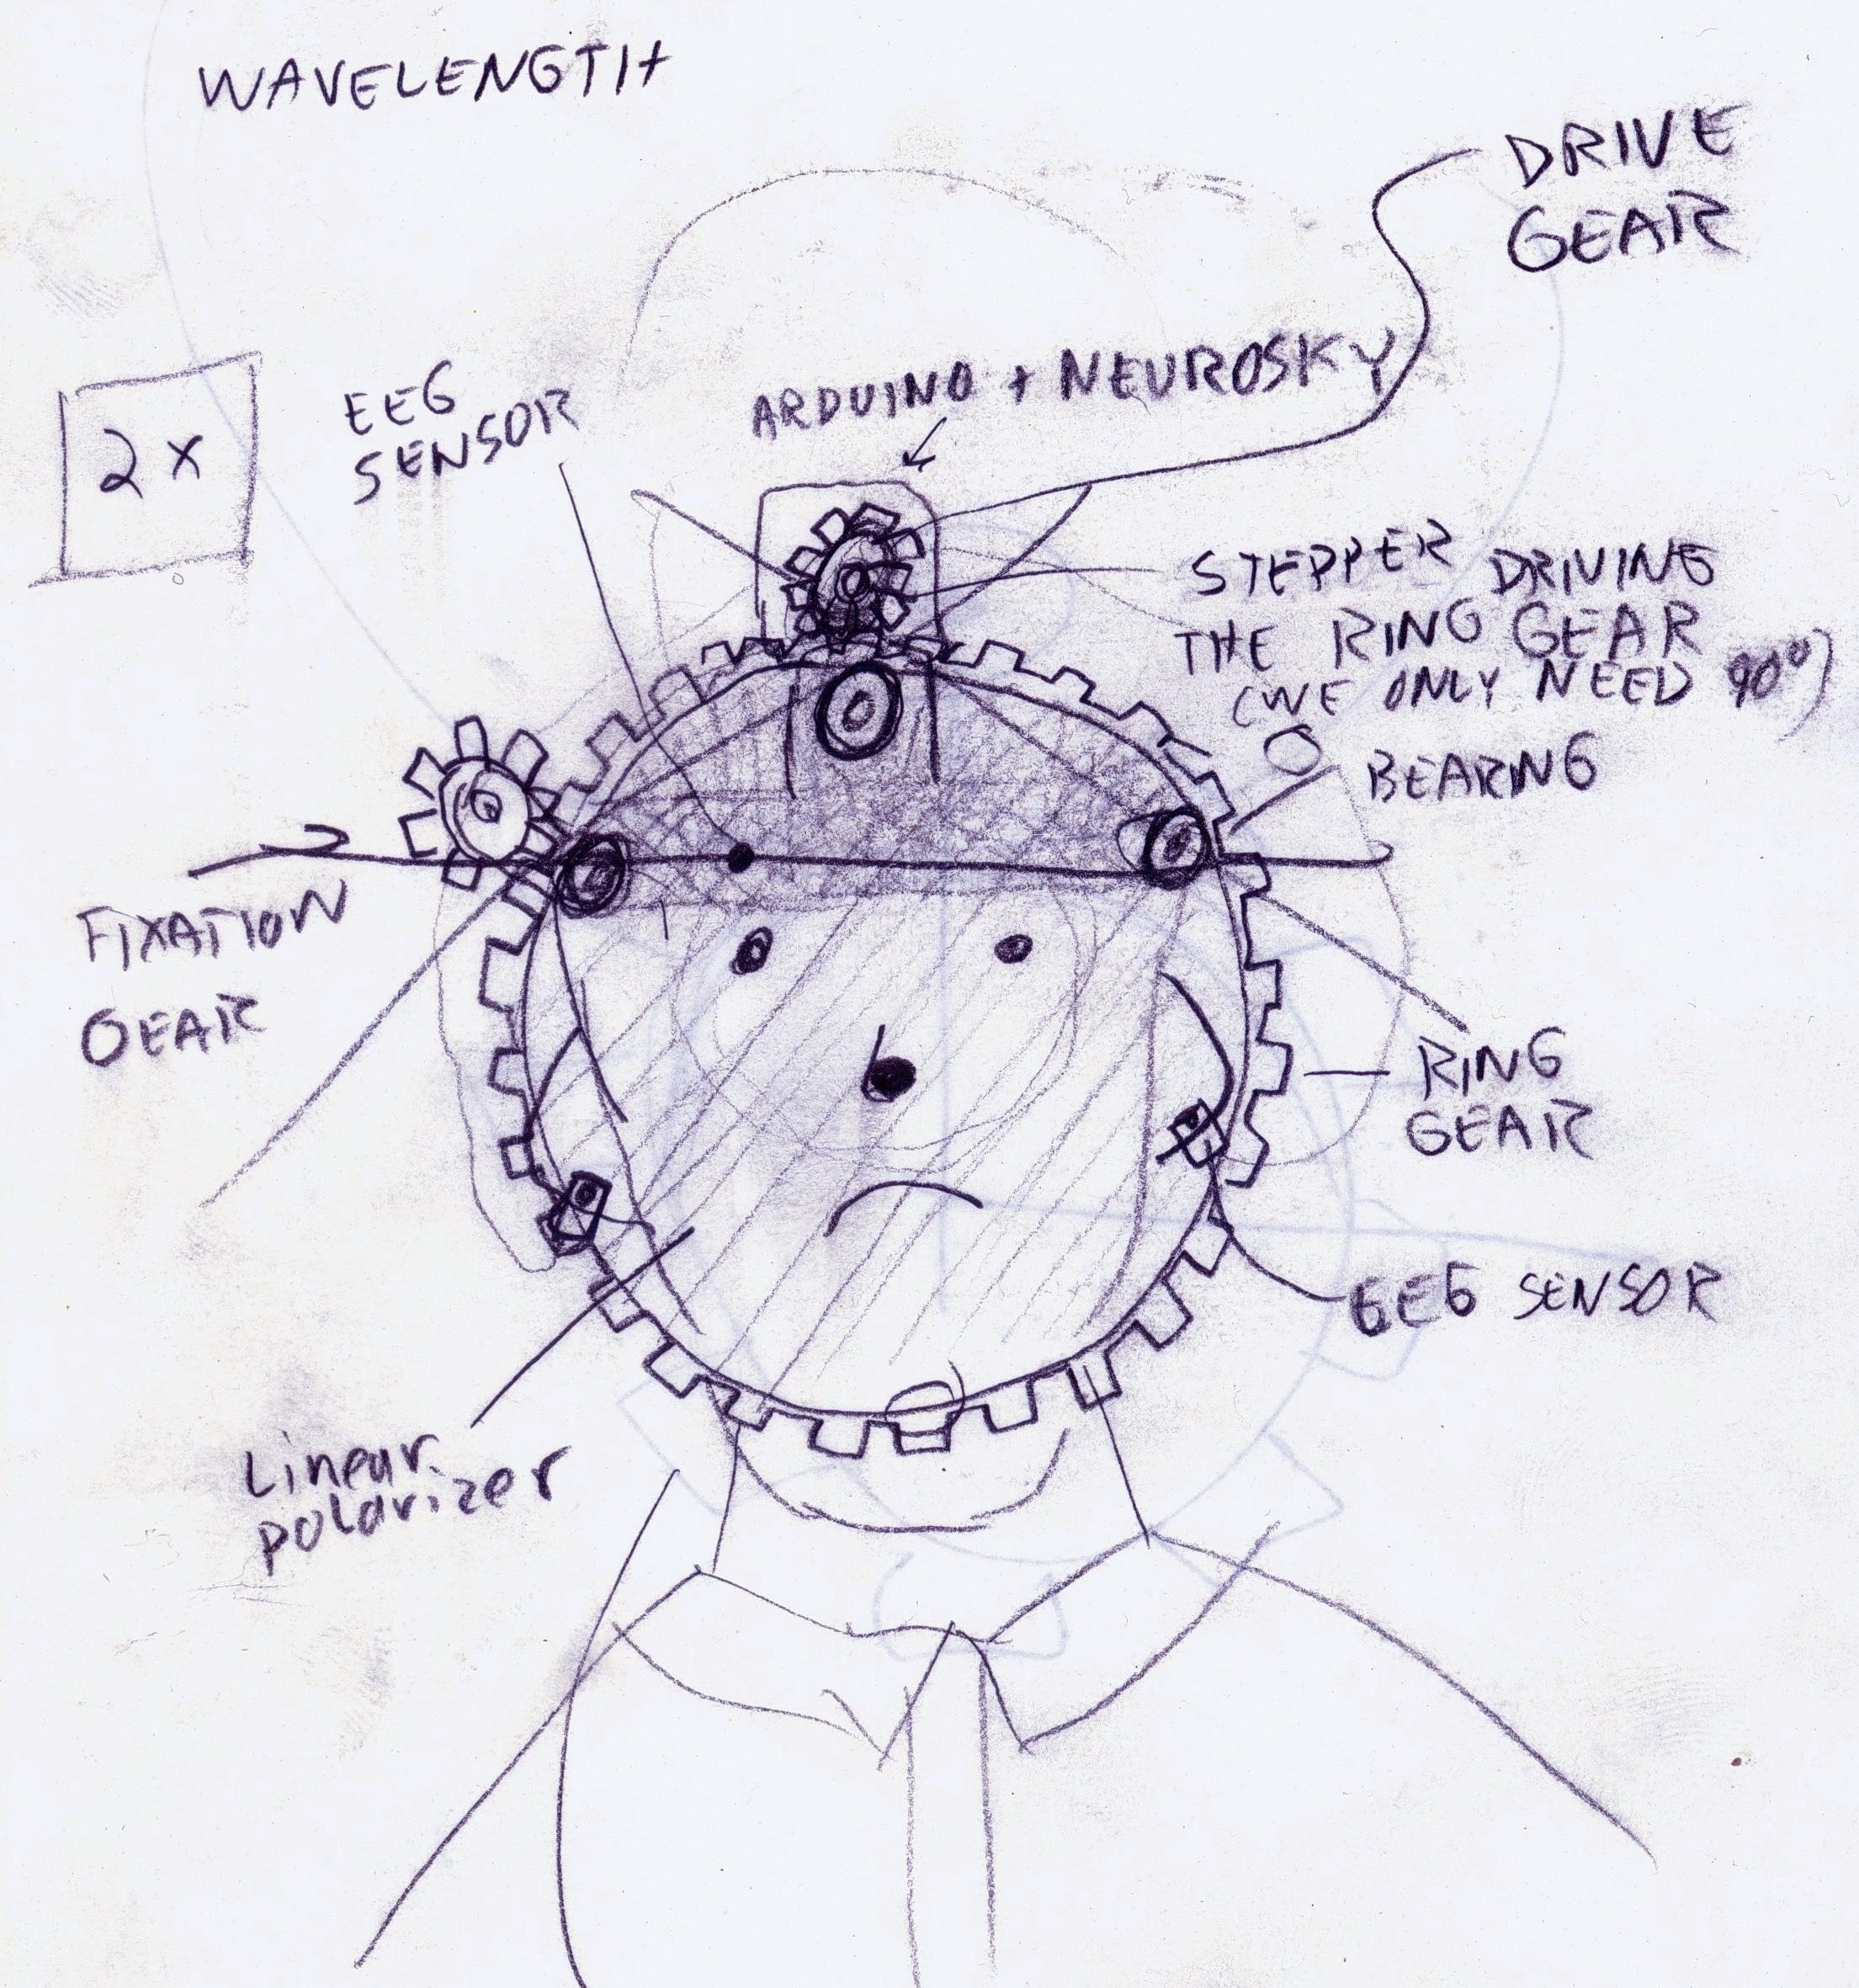 WAVELENGTH
DRIVE
GEAR
EEG
SENSOR
ARDUINO + NEUROSKY
2x
STEPPER DRIVING
THE RING GEAR
(WE ONLY NEED 90°)
BEARING
FIXATION
GEAR
RING
GEAR
EEG SENSOR
Linear
polarizer